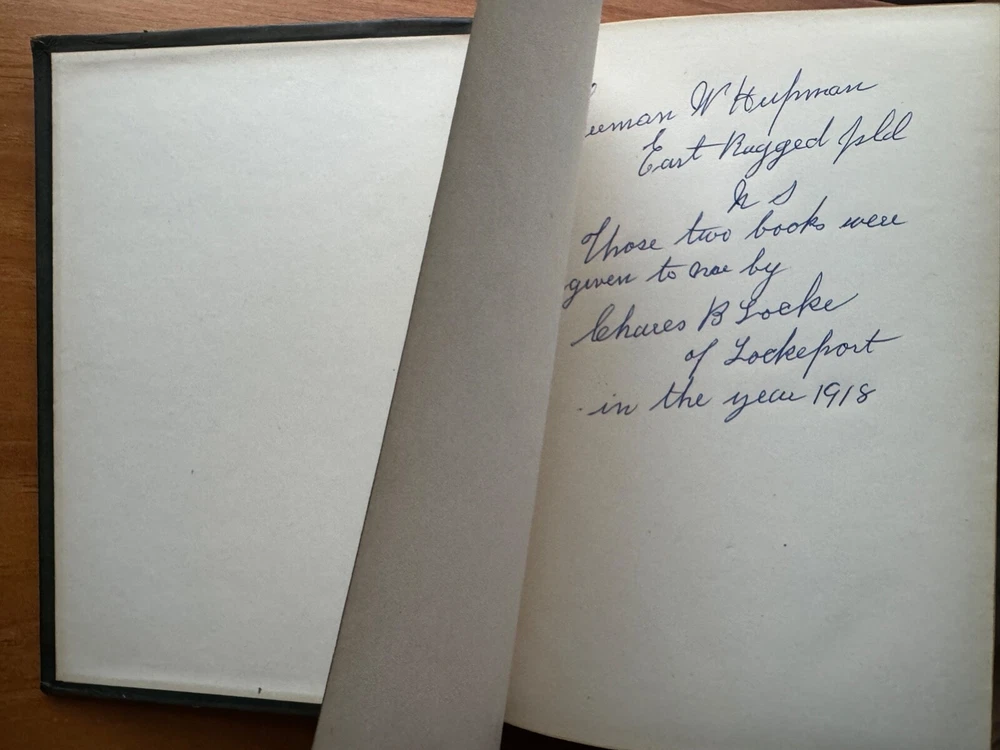 W Hupman
East Rugged Jsld
N S
Those two books were
given to me by
Chares B Locke
of Lockeport
in the year 1918